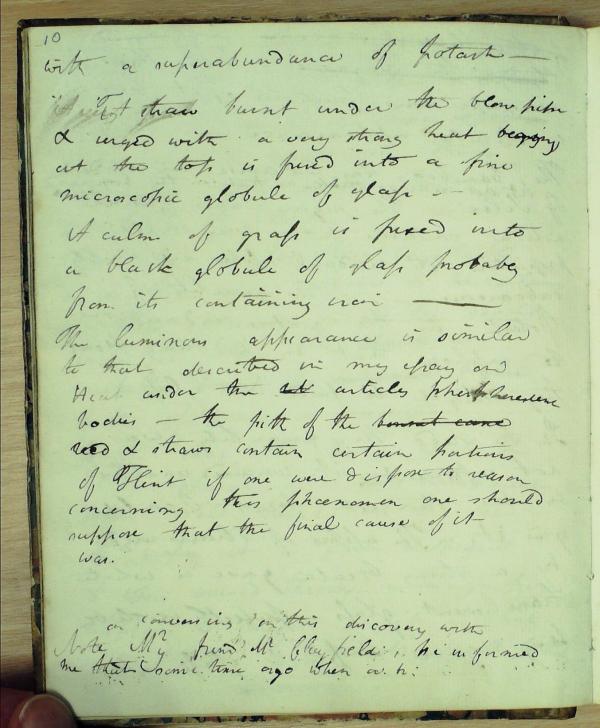 10
with a superabundance of potash —
straw burnt under the blow pipe
& urged with a very strong heat
at the top is fused into a fine
microscopic globule of glass —
A culm of grass is fused into
a black globule of glass probaby
from its containing iron —
The luminous appearance is similar
to that described in my essay on
Heat under the articles phosphorescent
bodies — the pith of the burnt cane
reed & straws contain certain portions
of Flint if one were dispose to reason
concerning this phœnomen one should
suppose that the final cause of it
was.
on conversing on this discovery with
Note My friend Mr Clayfield, he informed
me that some time ago when